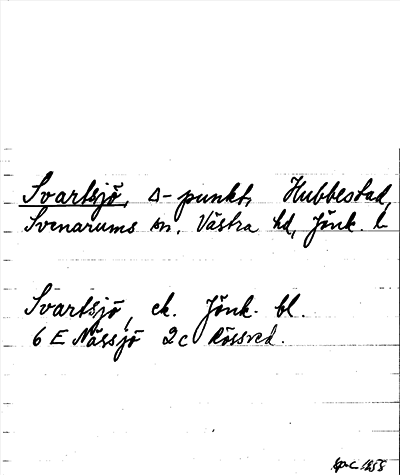 Svartsjö, Δ-punkt, Hubbestad,
Svenarums sn. Västra hd, Jönk. l
Svartsjö, ek. Jönk. bl.
6 E Nässjö 2c Rössved.